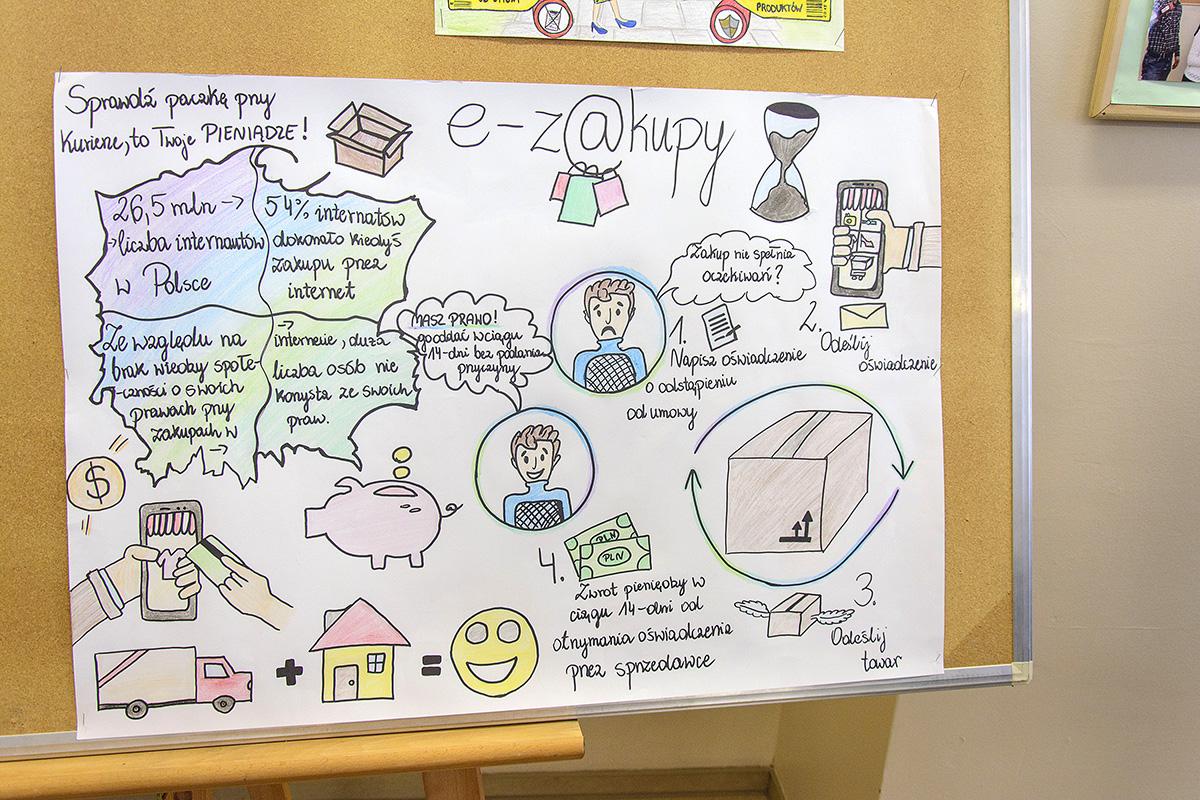 PRODUKTÓW
e-z@kupy
Sprawdź paczkę przy
Kurierze, to Twoje PIENIĄDZE!
26,5 mln →
→ liczba internautów
w Polsce
54% internatów
dokonało kiedyś
zakupu przez
internet
Ze względu na
brak wiedzy społe
-czności o swoich
prawach przy
zakupach w
→
→
internecie, duża
liczba osób nie
korzysta ze swoich
praw.
MASZ PRAWO!
go oddać w ciągu
14-dni bez podania
przyczyny
Zakup nie spełnia
oczekiwań?
1.
Napisz oświadczenie
o odstąpieniu
od umowy
2.
Odeślij
oświadczenie
3.
Odeślij
towar
4.
PLN
PLN
Zwrot pieniędzy w
ciągu 14-dni od
otrzymania oświadczenia
przez sprzedawce
$
+
=